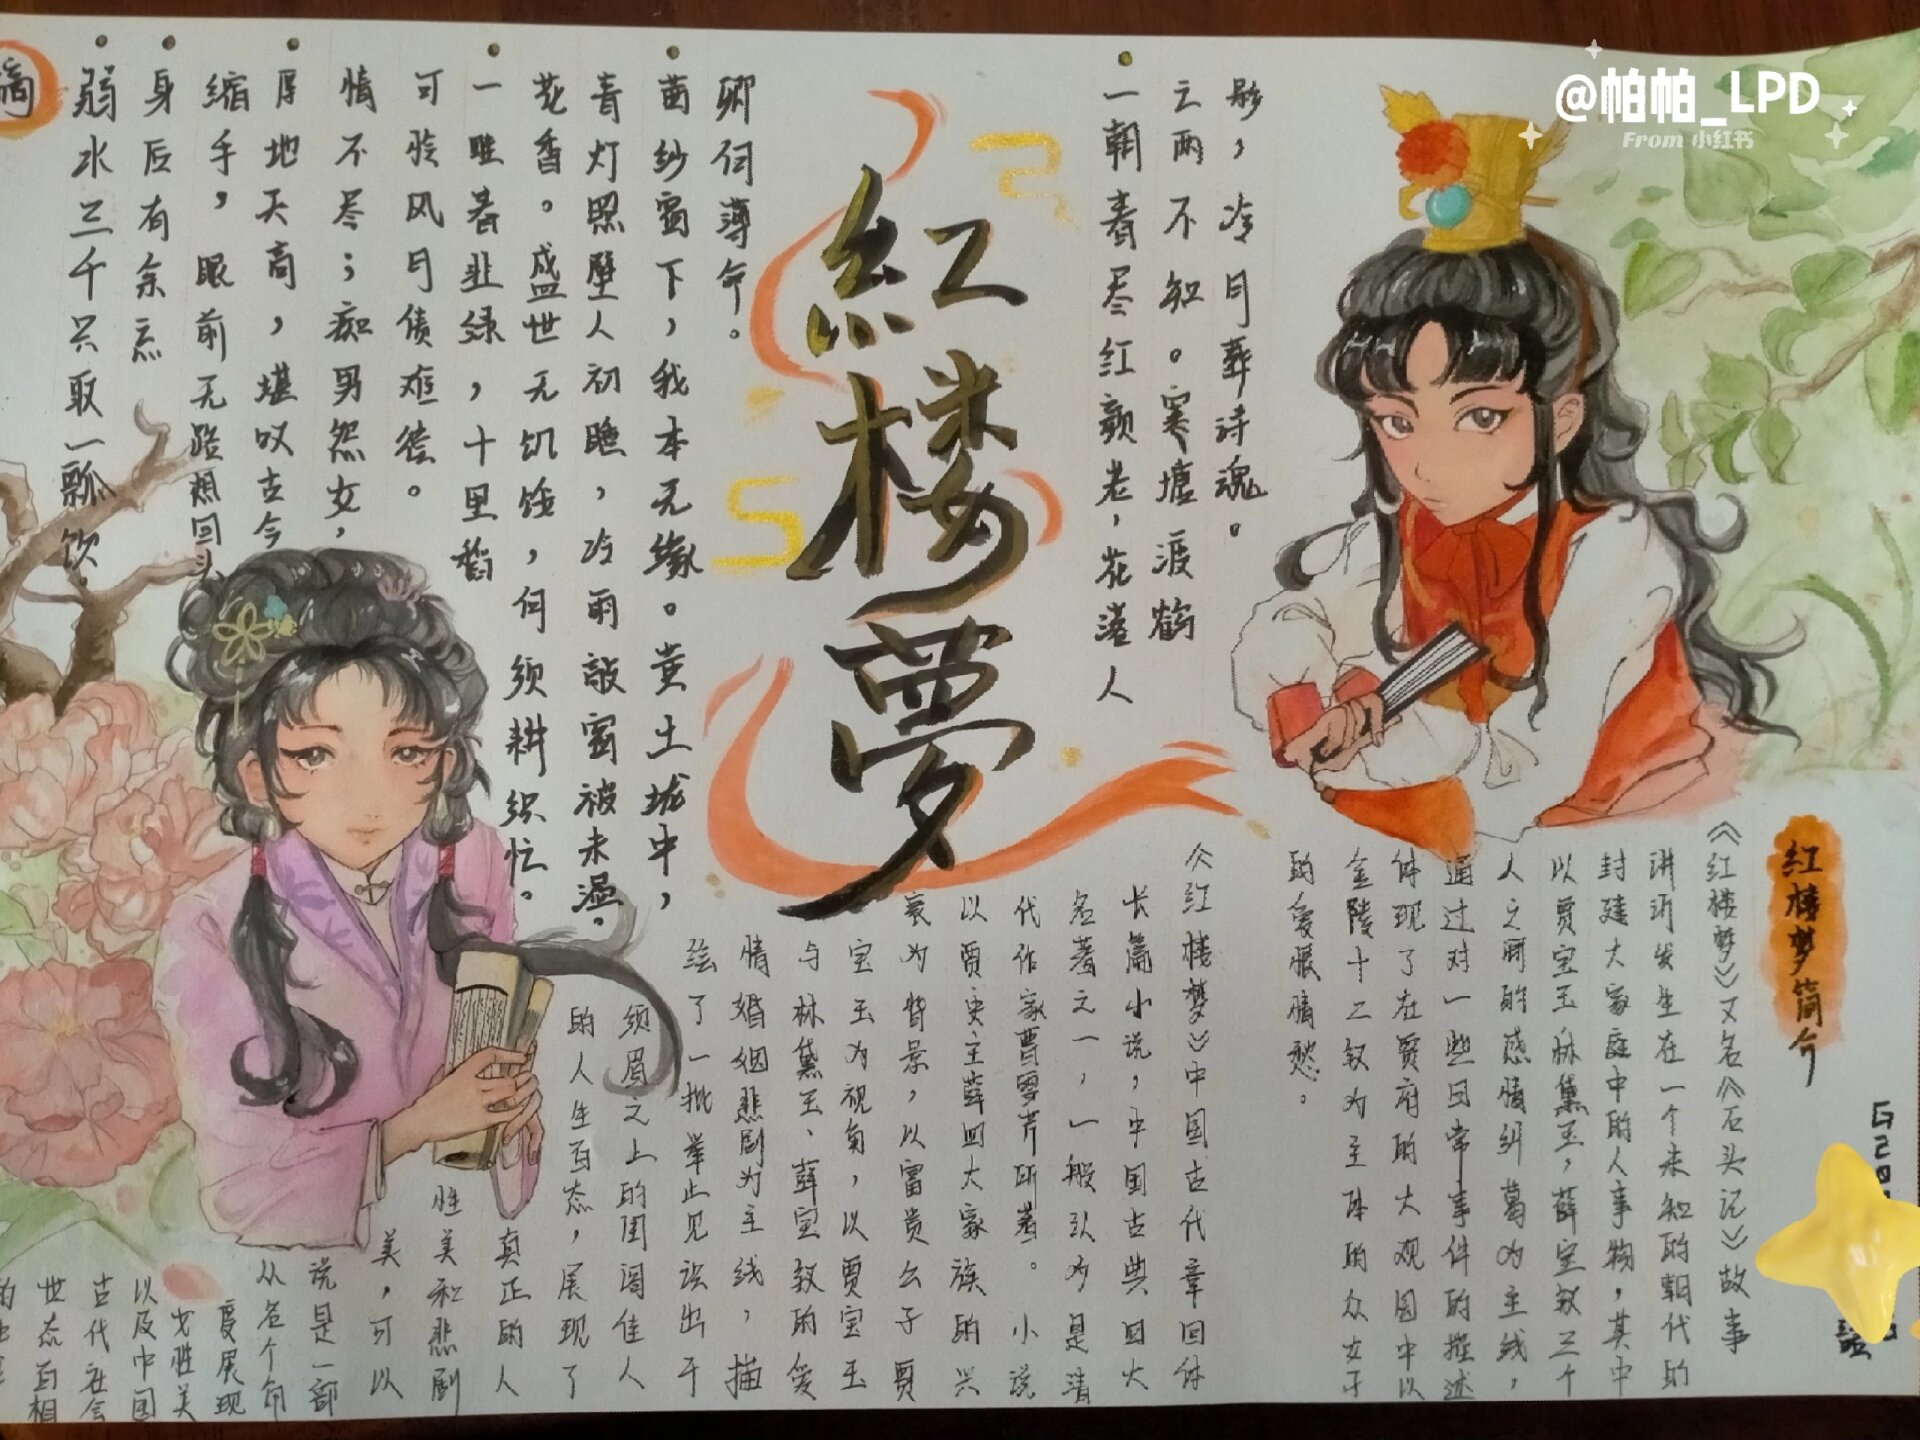 @帕帕_LPD
From 小红书
紅楼夢
摘
弱水三千只取一瓢饮。
身后有余忘
缩手，眼前无路想回头
厚地天高，堪叹古今
情不尽；痴男怨女，
可怜风月债难偿。
一畦春韭绿，十里稻
花香。盛世无饥馁，何须耕织忙。
青灯照壁人初睡，冷雨敲窗被未温。
茜纱窗下，我本无缘。黄土垅中，
卿何薄命。
一朝春尽红颜老，花落人
亡两不知。寒塘渡鹤
影，冷月葬诗魂。
红楼梦简介
《红楼梦》又名《石头记》故事
讲诉发生在一个未知的朝代的
封建大家庭中的人事物，其中
以贾宝玉林黛玉，薛宝钗三个
人之间的感情纠葛为主线，
通过对一些日常事件的描述
体现了在贾府的大观园中以
金陵十二钗为主体的众女子
的爱恨情愁。
《红楼梦》中国古代章回体
长篇小说，中国古典四大
名著之一，一般认为是清
代作家曹雪芹所著。小说
以贾史王薛四大家族的兴
衰为背景，以富贵公子贾
宝玉为视角，以贾宝玉
与林黛玉、薛宝钗的爱
情婚姻悲剧为主线，描
绘了一批举止见识出于
须眉之上的闺阁佳人
的人生百态，展现了
真正的人
性美和悲剧
美，可以
说是一部
从各个角
度展现
女性美
以及中国
古代社会
世态百相